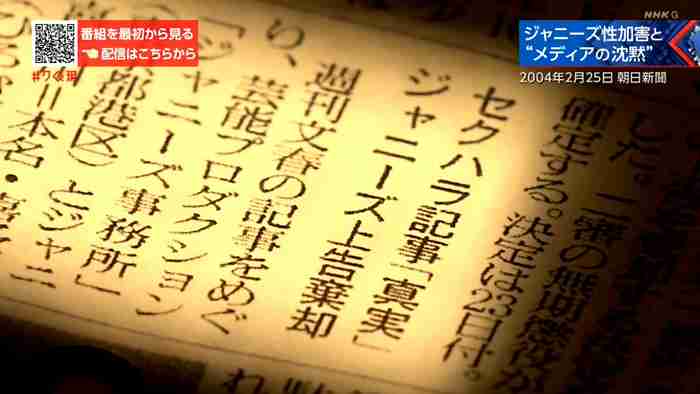 番組を最初から見る
配信はこちらから
NHK G
ジャニーズ性加害と
“メディアの沈黙”
2004年2月25日 朝日新聞
した。二審の無期懲役が
確定する。決定は23日付。
セクハラ記事「真実」
ジャニーズ上告棄却
週刊文春の記事をめぐ
り、芸能プロダクション
「ジャニーズ事務所」
都港区)とジャニ
＝本名・喜